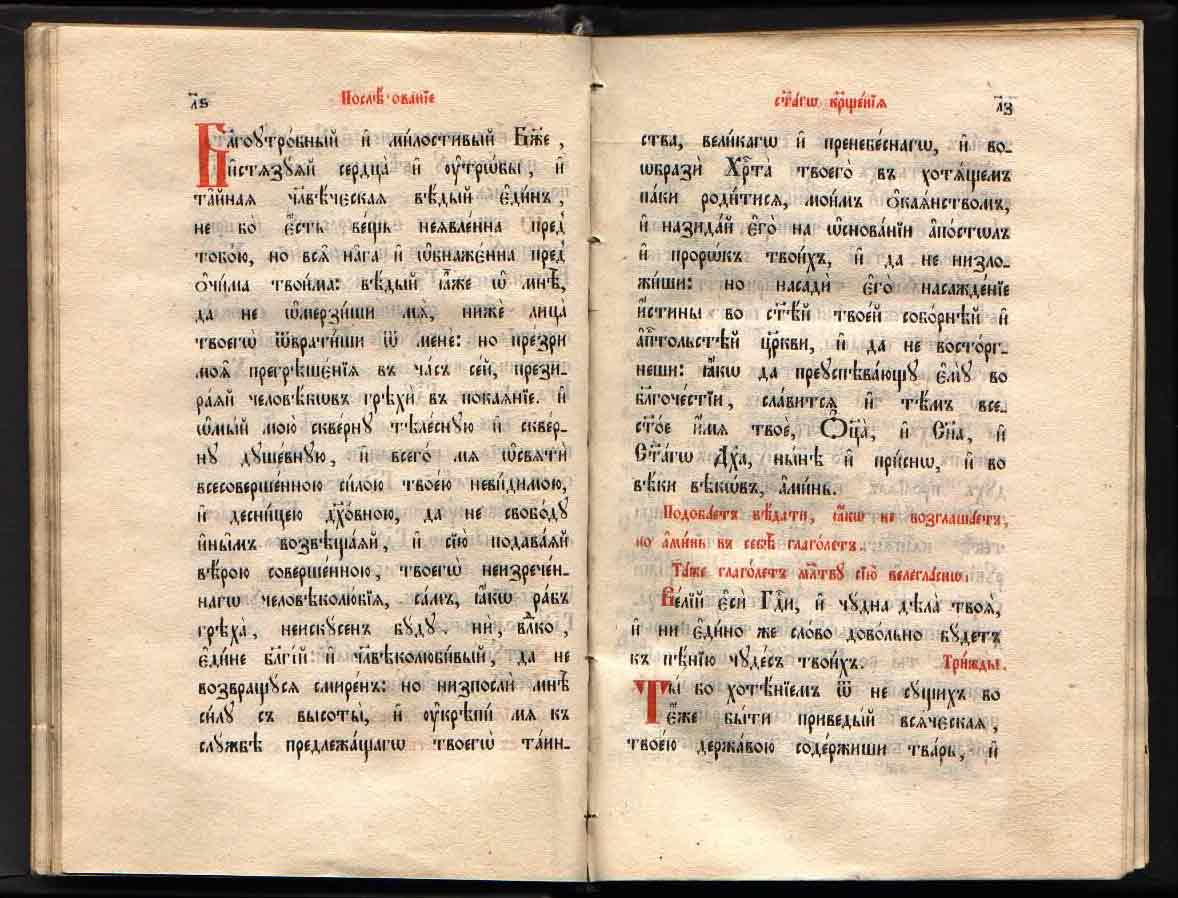 л҃ѕ Послѣ·ованїе
Бл҃гоутро́бный и҆ ми́лостивый Бж҃е,
и҆стѧзꙋѧй сердца̀ и҆ ᲂу҆трѡ́бы, и҆
та̑йнаѧ чл҃вѣ́ческаѧ вѣ́дый є҆ди́нъ,
не бо̀ є҆́сть ве́щь неꙗвле́нна пред̾
тобо́ю, но всѧ̑ на̑га и҆ ѡ҆бнаже́нна пред̾
ѻ҆чи́ма твои́ма: вѣ́дый ꙗ҆̀же ѡ҆ мнѣ̀,
да не ѡ҆мерзи́ши мѧ̀, нижѐ лица̀
твоегѡ̀ ѿврати́ши ѿ менѐ: но пре́зри
моѧ̑ прегрѣше́нїѧ въ ча́съ се́й, прези-
ра́ѧй человѣ́кѡвъ грѣхѝ въ покаѧ́нїе. и҆
ѡ҆мы́й мою̀ скве́рнꙋ тѣле́снꙋю и҆ скве́р-
нꙋ дꙋше́внꙋю, и҆ всего́ мѧ ѡ҆свѧтѝ
всесоверше́нною си́лою твое́ю неви́димою,
и҆ десни́цею дх҃о́вною, да не свобо́дꙋ
и҆ны̑мъ возвѣща́ѧй, и҆ сїю̀ подава́ѧй
вѣ́рою соверше́нною, твоегѡ̀ неизрече́н-
нагѡ человѣколю́бїѧ, са́мъ, ꙗ҆́кѡ ра́бъ
грѣха̀, неискꙋ́сенъ бꙋ́дꙋ. нѝ, влⷣко,
є҆ди́не бл҃гі́й и҆ чл҃вѣколюби́вый, да не
возвращꙋ́сѧ смире́нъ: но низпослѝ мнѣ̀
си́лꙋ съ высоты̀, и҆ ᲂу҆крѣпи́ мѧ къ
слꙋ́жбѣ предлежа́щагѡ твоегѡ̀ та́ин-
ст҃а́гѡ крⷭ҇ще́нїѧ л҃з
ства, вели́кагѡ и҆ пренебе́снагѡ, и҆ во-
ѡ҆бразѝ Хрⷭ҇та̀ твоего̀ въ хотѧ́щемъ
па́ки роди́тисѧ, мои́мъ ѻ҆каѧ́нствомъ,
и҆ назида́й є҆го̀ на ѡ҆снова́нїи а҆по́столъ
и҆ проро́къ твои́хъ, и҆ да не низло-
жи́ши: но насадѝ є҆го̀ насажде́нїе
и҆́стины во ст҃ѣ́й твое́й собо́рнѣй и҆
а҆пⷭ҇тольстѣ́й цр҃кви, и҆ да не восто́рг-
неши: ꙗ҆́кѡ да преꙋспѣва́ющꙋ є҆мꙋ̀ во
бл҃гоче́стїи, сла́витсѧ и҆ тѣ́мъ все-
ст҃о́е и҆́мѧ твоѐ, Ѻ҆ц҃а̀, и҆ Сн҃а, и҆
Ст҃а́гѡ Дх҃а, ны́нѣ и҆ при́снѡ, и҆ во
вѣ́ки вѣкѡ́въ, а҆ми́нь.
Подоба́етъ вѣ́дати, ꙗ҆́кѡ не возглаша́етъ,
но а҆ми́нь въ себѣ̀ глаго́летъ.
Та́же глаго́летъ мл҃твꙋ сїю̀ велегла́снѡ.
Ве́лїй є҆сѝ Гдⷭ҇и, и҆ чꙋ́дна дѣла̀ твоѧ̑,
и҆ ни є҆ди́но же сло́во дово́льно бꙋ́детъ
къ пѣ́нїю чꙋде́съ твои́хъ. Три́жды.
Ты́ бо хотѣ́нїемъ ѿ не сꙋ́щихъ во
є҆́же бы́ти приведы́й всѧ́ческаѧ,
твое́ю держа́вою соде́ржиши тва́рь, и҆